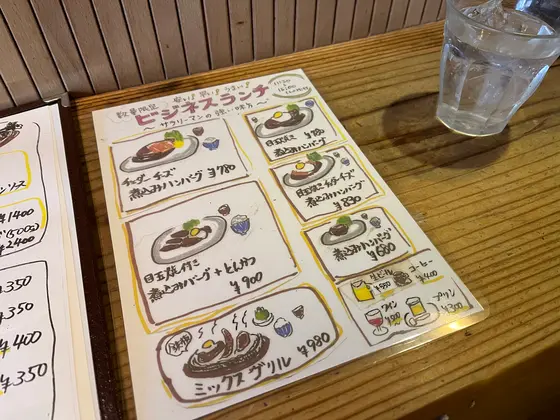 数量限定 安い!早い!うまい!
ビジネスランチ
〜サラリーマンの強い味方〜
チェダーチーズ
煮込みハンバーグ ¥780
目玉焼付き
煮込みハンバーグ+とんかつ
¥900
鉄板
ミックスグリル ¥980
煮込みハンバーグ
目玉焼きチェダーチーズ
煮込みハンバーグ
¥830
煮込みハンバーグ
¥680
生ビール
コーヒー
¥400
ワイン
プリン
¥300
ソース
¥1400
(500g)
¥2400
¥350
¥350
¥400
¥350